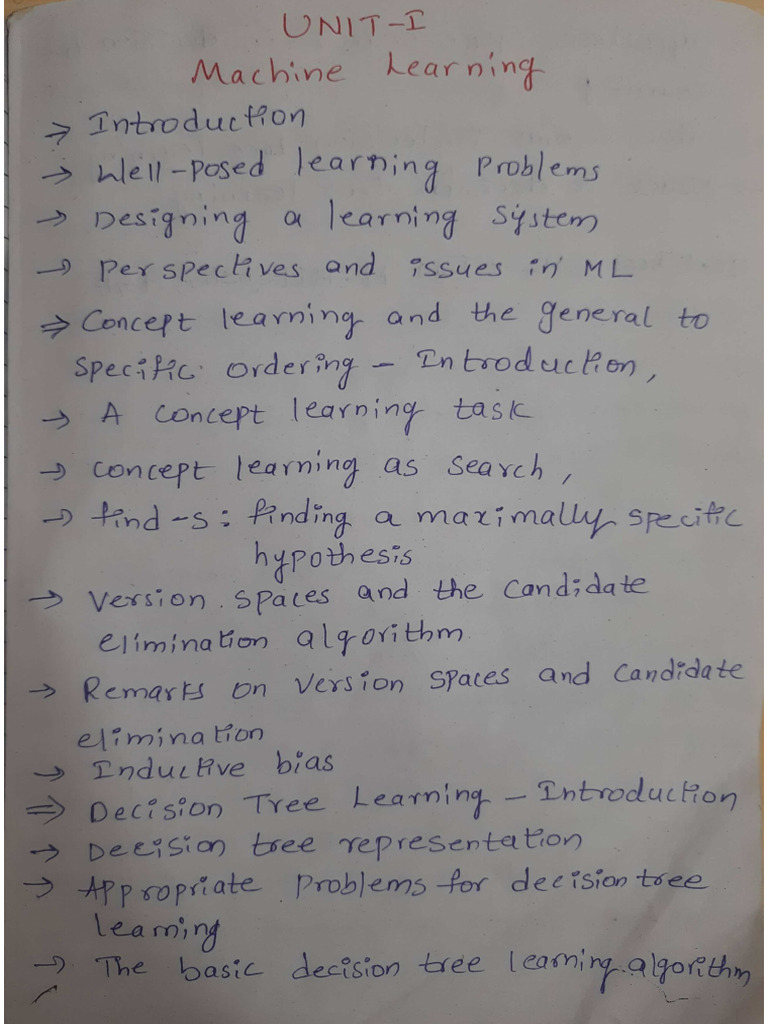 UNIT-I
Machine Learning
⇒ Introduction
→ Well-Posed learning Problems
→ Designing a learning System
→ perspectives and issues in ML
⇒ Concept learning and the general to
specific ordering - Introduction,
→ A concept learning task
→ concept learning as search,
→ find-s: finding a maximally specific
hypothesis
→ Version spaces and the candidate
elimination algorithm
→ Remarks on version spaces and candidate
elimination
→ Inductive bias
⇒ Decision Tree Learning - Introduction
→ Decision tree representation
→ Appropriate problems for decision tree
learning
→ The basic decision tree learning algorithm